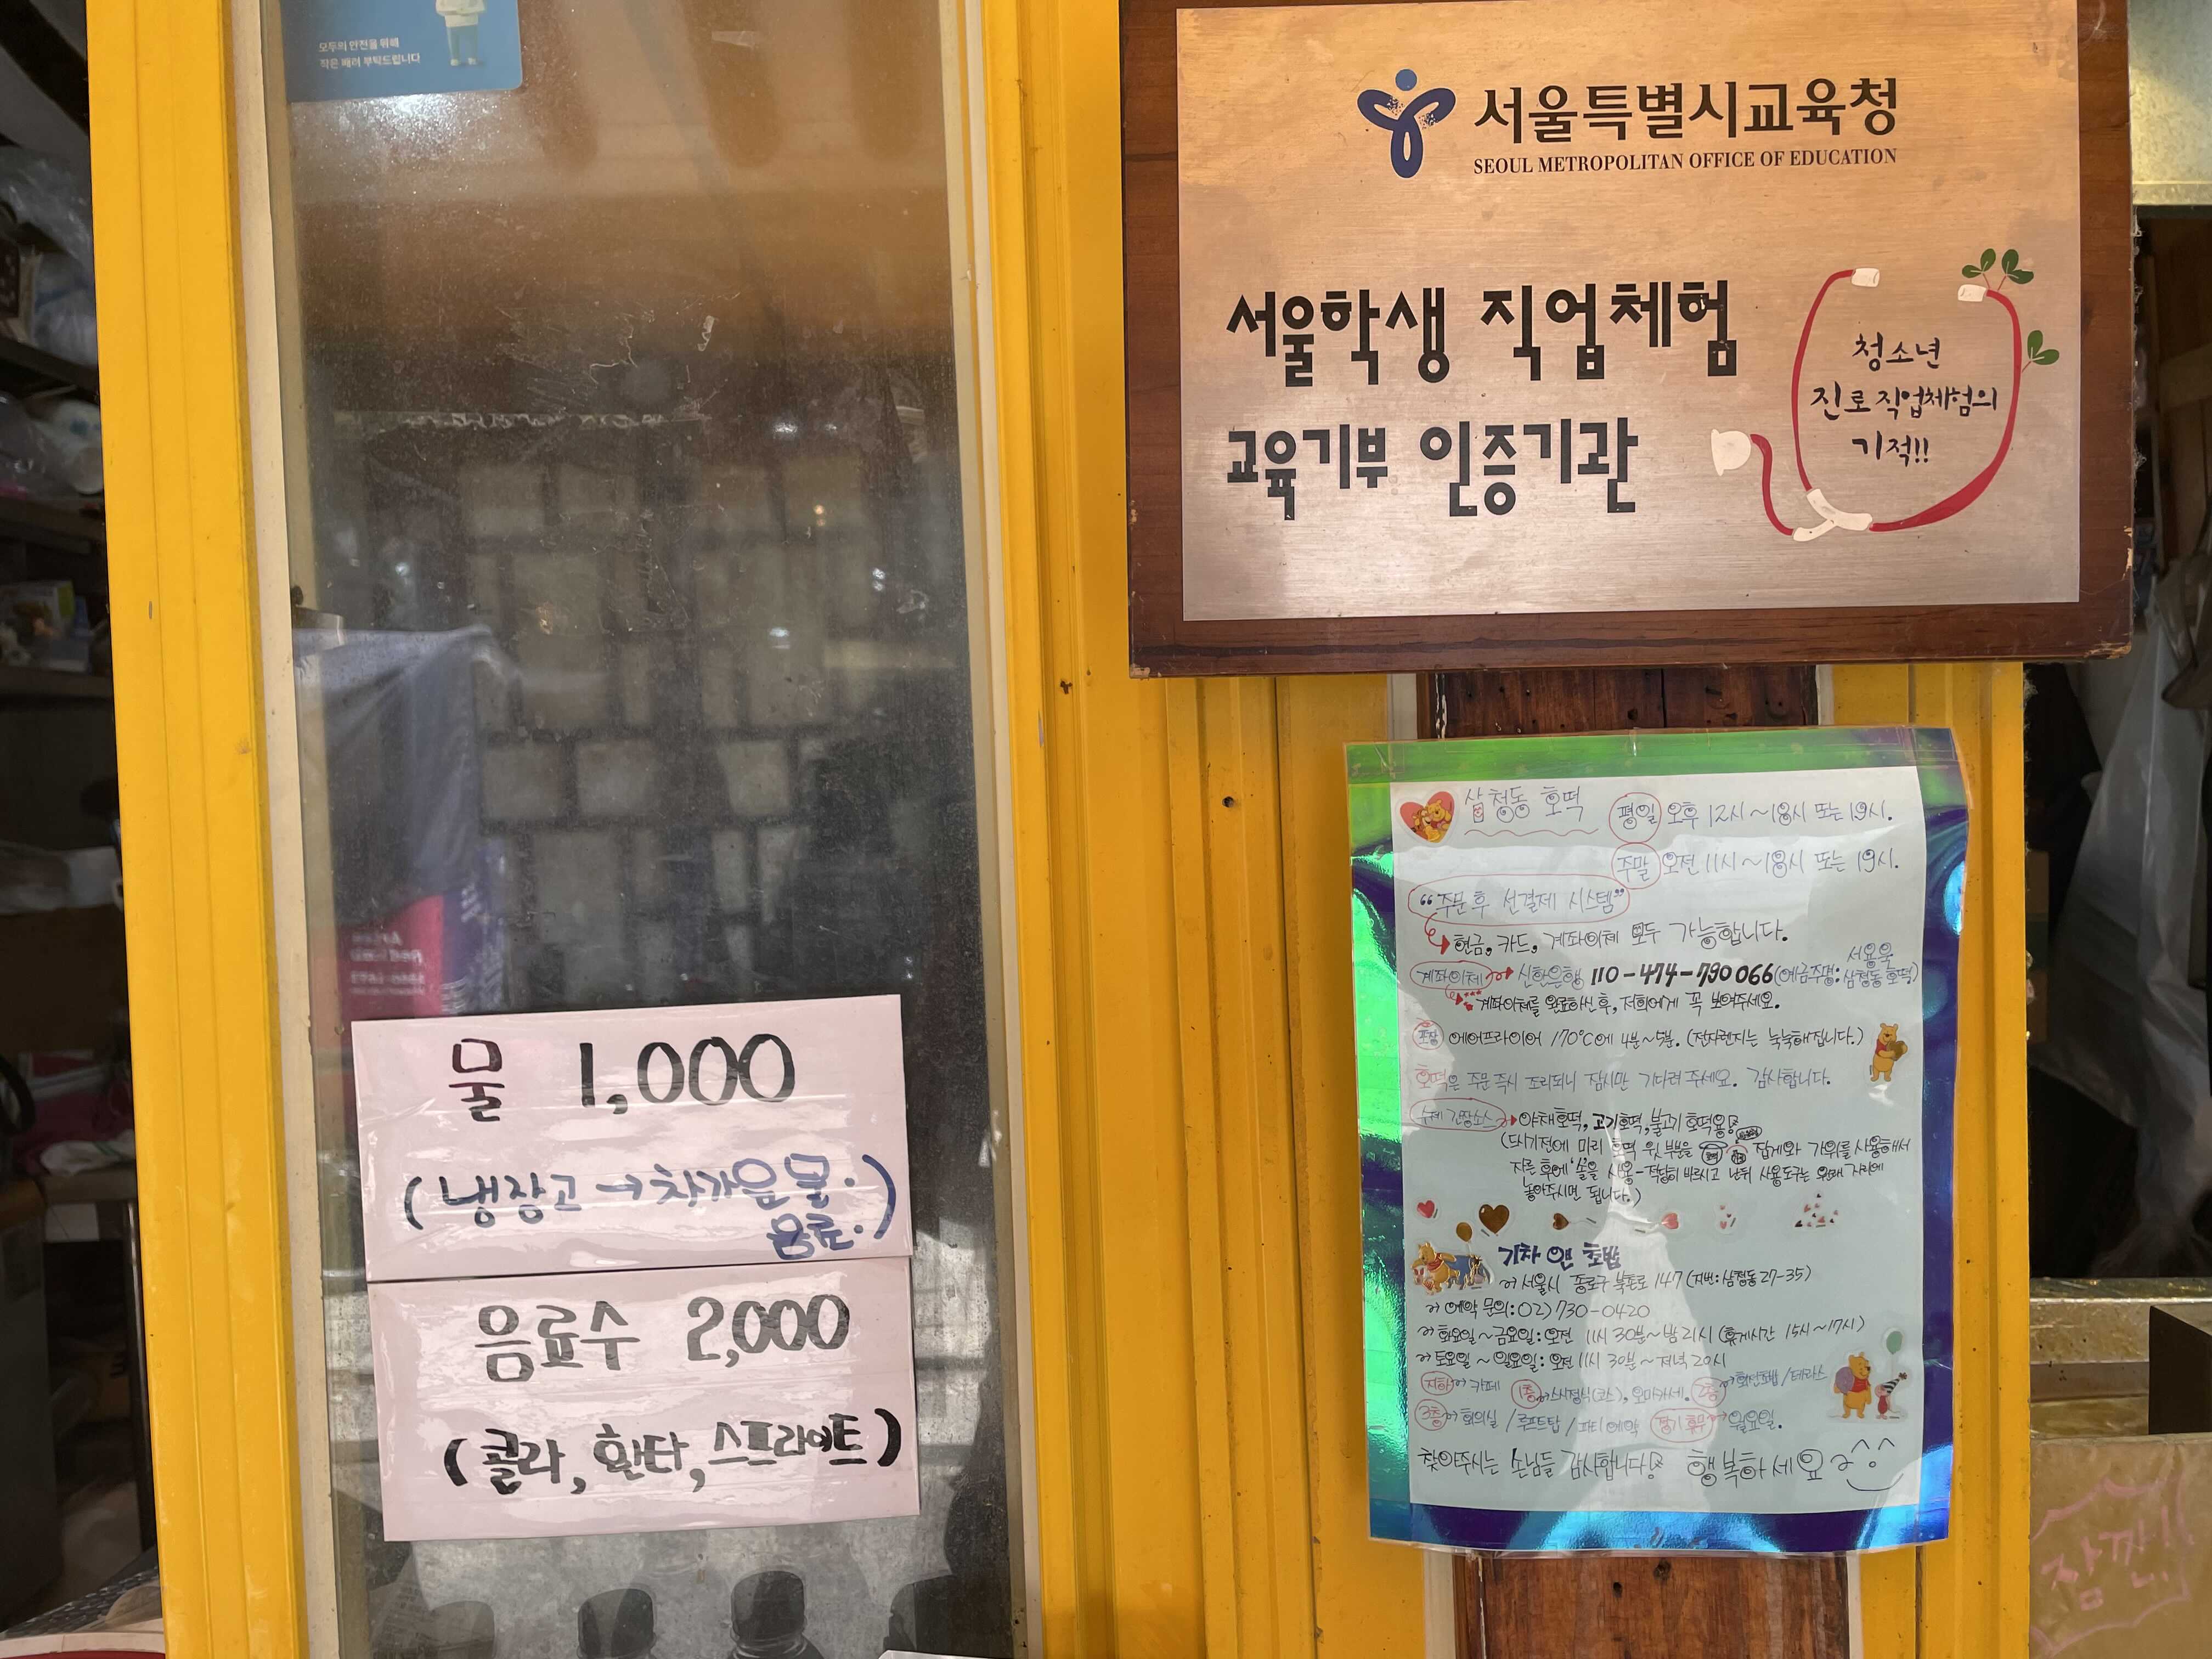 모두의 안전을 위해
작은 배려 부탁드립니다
서울특별시교육청
SEOUL METROPOLITAN OFFICE OF EDUCATION
서울학생 직업체험
교육기부 인증기관
청소년
진로직업체험의
기적!!
물 1,000
(냉장고→차가운 물.
음료.)
음료수 2,000
(콜라, 환타, 스프라이트)
삼청동 호떡
평일 오후 12시~18시 또는 19시.
주말 오전 11시~18시 또는 19시.
"주문 후 선결제 시스템"
현금, 카드, 계좌이체 모두 가능합니다.
계좌이체 신한은행 110-474-790066 (예금주명: 서용욱 삼청동호떡)
계좌이체를 완료하신 후, 저희에게 꼭 보여주세요.
포장 에어프라이어 170°C에 4분~5분. (전자렌지는 눅눅해집니다.)
호떡은 주문 즉시 조리되니 잠시만 기다려 주세요. 감사합니다.
수제 간장소스 야채호떡, 고기호떡, 불고기 호떡용
(드시기전에 미리 호떡 윗부분을 집게와 가위를 사용해서
자른 후에 '솔'을 사용-적당히 바르시고 난뒤 사용도구는 원래 자리에
놓아주시면 됩니다.)
기차 앤 초밥
서울시 종로구 북촌로 147 (지번: 삼청동 27-35)
예약 문의: 02) 730-0420
화요일~금요일: 오전 11시 30분~밤 21시 (휴게시간 15시~17시)
토요일~일요일: 오전 11시 30분~저녁 20시
지하 카페 1층 스시정식(코스), 오마카세. 2층 회전초밥/테라스
3층 회의실/루프탑/파티예약 정기휴무 월요일.
찾아주시는 손님들 감사합니다 행복하세요
잠깐!!